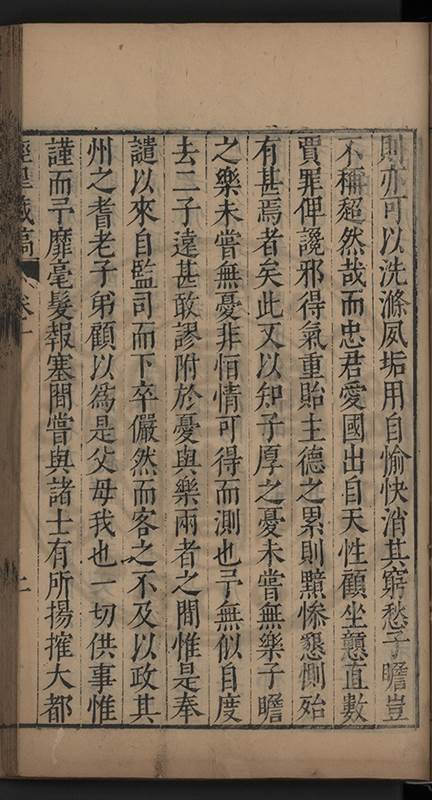 則亦可以洗滌夙垢用自愉快消其窮愁子瞻豈
不稱超然哉而忠君愛國出自天性顧坐戇直數
賈罪俾讒邪得氣重貽主德之累則黯慘懇惻殆
有甚焉者矣此又以知子厚之憂未嘗無樂子瞻
之樂未嘗無憂非恒情可得而測也予無似自度
去二子遠甚敢謬附於憂與樂兩者之間惟是奉
譴以來自監司而下卒儼然而客之不及以政其
州之耆老子弟顧以為是父母我也一切供事惟
謹而予靡毫髮報塞間嘗與諸士有所揚搉大都
皇 藏稿 卷一